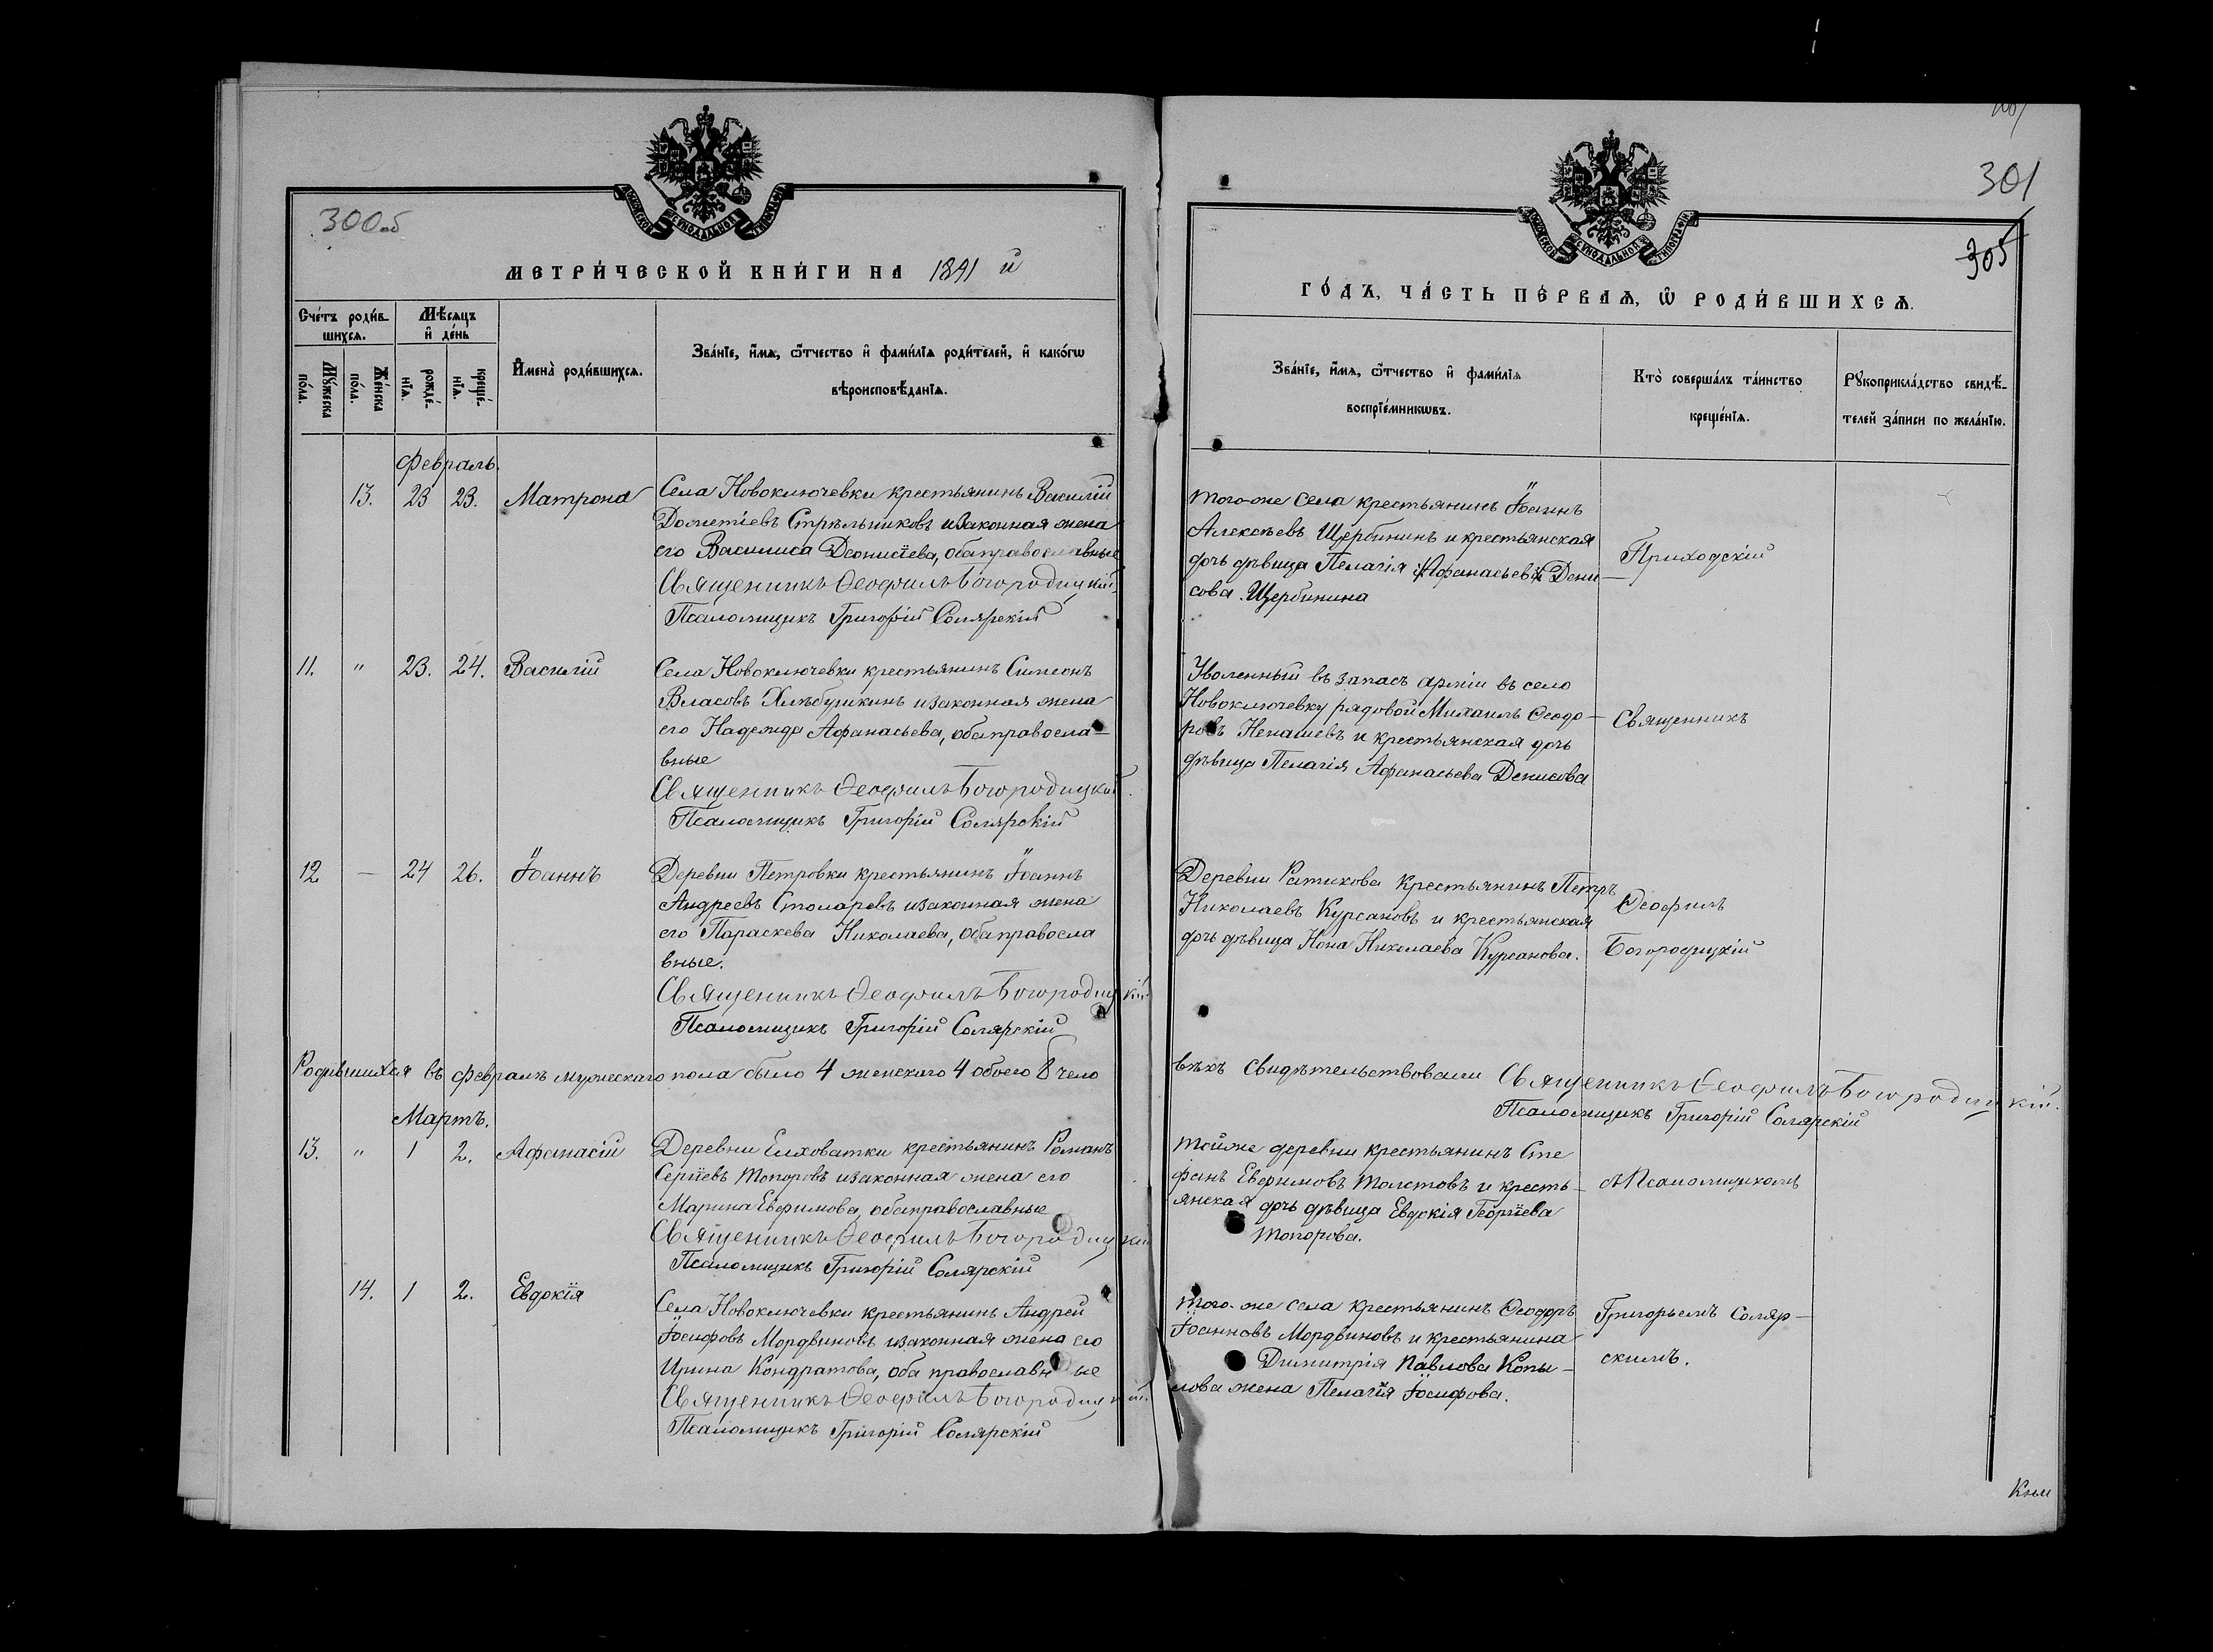 300об
МОСКОВСКОЙ СѴНОДАЛЬНОЙ ТИПОГРАФІИ
МЕТРИ́ЧЕСКОЙ КНИ́ГИ НА 1891 й
Сче́тъ роди́в-
шихсѧ.
Мѣ́сѧцъ
и҆ де́нь
Мꙋ́жеска
по́ла.
Же́нска
по́ла.
рожде́-
нїѧ.
креще́-
нїѧ.
И҆мена̀ роди́вшихсѧ.
Зва́нїе, и҆́мѧ, ѻ҆́тчество и҆ фами́лїѧ роди́телей, и҆ како́гѡ
вѣроисповѣ́данїѧ.
Февраль.
13. 23 23. Матрона
Села Новоключевки крестьянинъ Василій
Дометіевъ Стрѣльниковъ и законная жена
его Василиса Деонисіева, оба православные
Священникъ Ѳеофилъ Богородицкій.
Псаломщикъ Григорій Солярскій
11. " 23. 24. Василій
Села Новоключевки крестьянинъ Симеонъ
Власовъ Хлѣбушкинъ и законная жена
его Надежда Афанасьева, оба правосла-
вные
Священникъ Ѳеофилъ Богородицкій.
Псаломщикъ Григорій Солярскій
12 — 24 26. Іоаннъ
Деревни Петровки крестьянинъ Іоаннъ
Андреевъ Столаревъ и законная жена
его Параскева Николаева, оба правосла
вные.
Священникъ Ѳеофилъ Богородицкій
Псаломщикъ Григорій Солярскій
Родившихся въ февралѣ мужескаго пола было 4 женскаго 4 обоего 8 чело
Мартъ.
13. " 1 2. Афанасій
Деревни Елховатки крестьянинъ Романъ
Сергіевъ Топоровъ и законная жена его
Марина Евфимова, оба православные
Священникъ Ѳеофилъ Богородицкій
Псаломщикъ Григорій Солярскій
14. 1 2. Евдокія
Села Новоключевки крестьянинъ Андрей
Іосифовъ Мордвиновъ и законная жена его
Ирина Кондратова, оба православн ые
Священникъ Ѳеофилъ Богородицкій.
Псаломщикъ Григорій Солярскій
301
305
МОСКОВСКОЙ СѴНОДАЛЬНОЙ ТИПОГРАФІИ
ГО́ДЪ, ЧА́СТЬ ПЕ́РВАѦ, Ѡ҆ РОДИ́ВШИХСѦ.
Зва́нїе, и҆́мѧ, ѻ҆́тчество и҆ фами́лїѧ
воспрїе́мникѡвъ.
Кто̀ соверша́лъ та́инство
креще́нїѧ.
Рꙋкоприкла́дство свидѣ́-
телей за́писи по жела́нїю.
того-же села крестьянинъ Іоаннъ
Алексѣевъ Щербининъ и крестьянская
дочь дѣвица Пелагія Афанасьева Дени-
сова. Щербинина
Приходскій
Уволенный въ запасъ арміи въ село
Новоключевку рядовой Михаилъ Ѳеодо-
ровъ Ненашевъ и крестьянская дочь
дѣвица Пелагія Афанасьева Денисова
Священникъ
Деревни Ратикова крестьянинъ Петръ
Николаевъ Курсановъ и крестьянская
дочь дѣвица Нона Николаева Курсанова.
Ѳеофилъ
Богородицкій
вѣкъ свидѣтельствовали Священникъ Ѳеофилъ Богородицкій.
Псаломщикъ Григорій Солярскій
тойже деревни крестьянинъ Сте
фанъ Евфимовъ Толстовъ и кресть-
янская дочь дѣвица Евдокія Георгіева
Топорова.
съ Псаломщикомъ
того-же села крестьянинъ Ѳеодоръ
Іоанновъ Мордвиновъ и крестьянина
Димитрія Павлова Копы-
лова жена Пелагія Іосифова.
Григорьемъ Соляр-
скимъ.